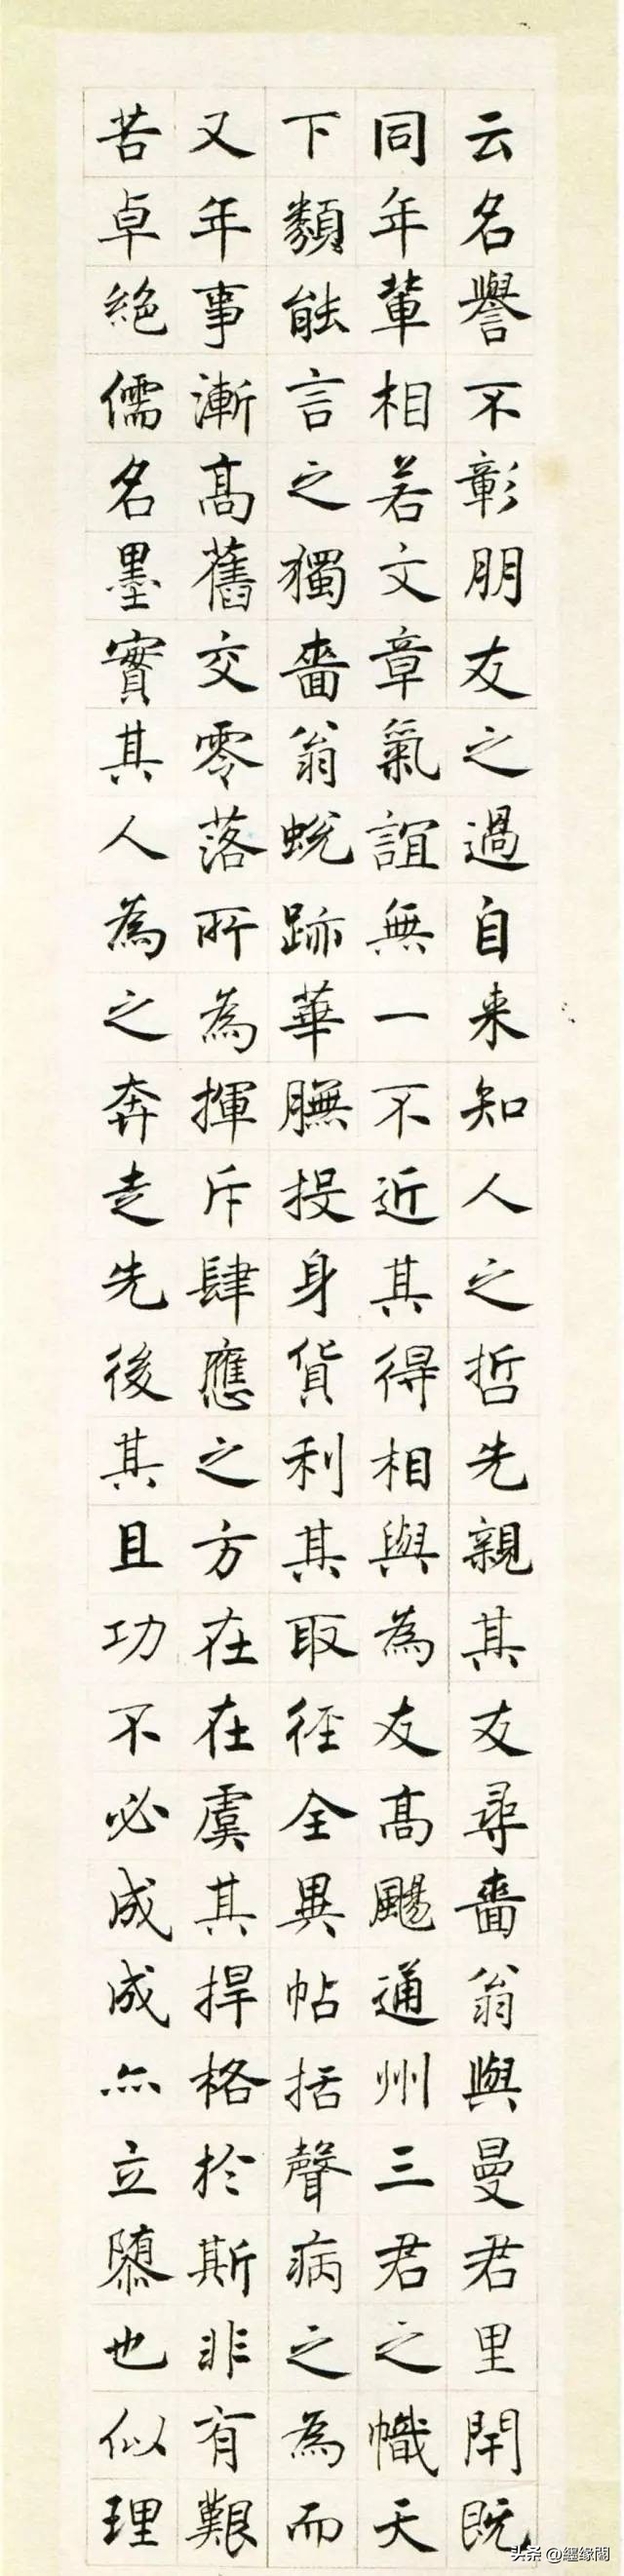 云名譽不彰朋友之過自来知人之哲先親其友尋嗇翁與曼君里閈既
同年輩相若文章氣誼無一不近其得相與為友高颺通州三君之幟天
下類能言之獨嗇翁蛻跡華膴投身貨利其取徑全異帖括聲病之為而
又年事漸高舊交零落所為揮斥肆應之方在在虞其捍格於斯非有艱
苦卓絶儒名墨實其人為之奔走先後其且功不必成成亦立隳也似理
头条 @纒缘阁